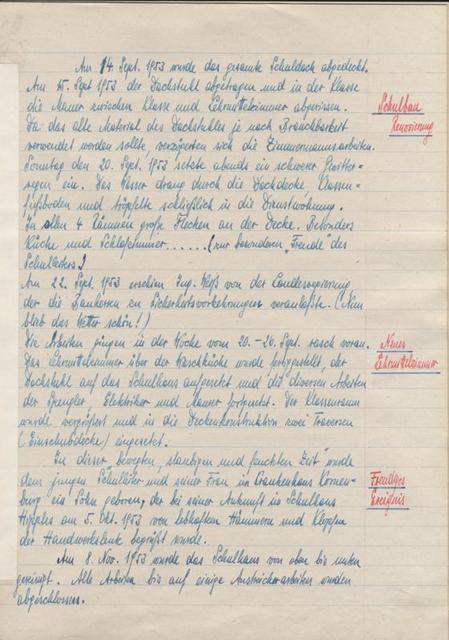 Am 14. Sept. 1953 wurde das gesamte Schuldach abgedeckt.
Am 15. Sept 1953 der Dachstuhl abgetragen und in der Klasse
die Mauer zwischen Klasse und Lehrmittelzimmer abgerissen.
Schulbau
Renovierung
Da das alte Material des Dachstuhles je nach Brauchbarkeit
verwendet werden sollte verzögerten sich die Zimmermannsarbeiten.
Sonntag den 20. Sept. 1953 setzte abends ein schwerer Gewitter-
regen ein. Das Wasser drang durch die Dachdecke, Klassen-
fußboden und tröpfelte schließlich in die Dienstwohnung.
In allen 4 Räumen große Flecken an der Decke. Besonders
Küche und Schlafzimmer...... (zur besonderen "Freude" des
Schulleiters)
Am 22. Sept. 1953 erschien Ing. von der Landesregierung
der die Bauherren zu Sicherheitsvorkehrungen veranlaßte. (Nun
blieb das Wetter schön!)
Die Arbeiten gingen in der Woche vom 20.-26. Sept. rasch voran.
Neues
Lehrmittelzimmer
Das Lehrmittelzimmer über der Waschküche wurde fertiggestellt, der
Dachstuhl auf das Schulhaus aufgesetzt und die diversen Arbeiten
der Spengler, Elektriker und Maurer fortgesetzt. Der Klassenraum
wurde vergrößert und in die Deckenkonstruktion zwei Traversen
(Einschubdecke) eingesetzt.
In dieser "bewegten, staubigen und feuchten Zeit" wurde
dem jungen Schulleiter und seiner Frau im Krankenhaus Korneu-
Freudiges
Ereignis
burg ein Sohn geboren, der bei seiner Ankunft im Schulhaus
am 5. Okt. 1953 von lebhaftem Hämmern und Klopfen
der Handwerksleute begrüßt wurde.
Am 8. Nov. 1953 wurde das Schulhaus von oben bis unten
gereinigt. Alle Arbeiten bis auf einige Anstreicherarbeiten wurden
abgeschlossen.